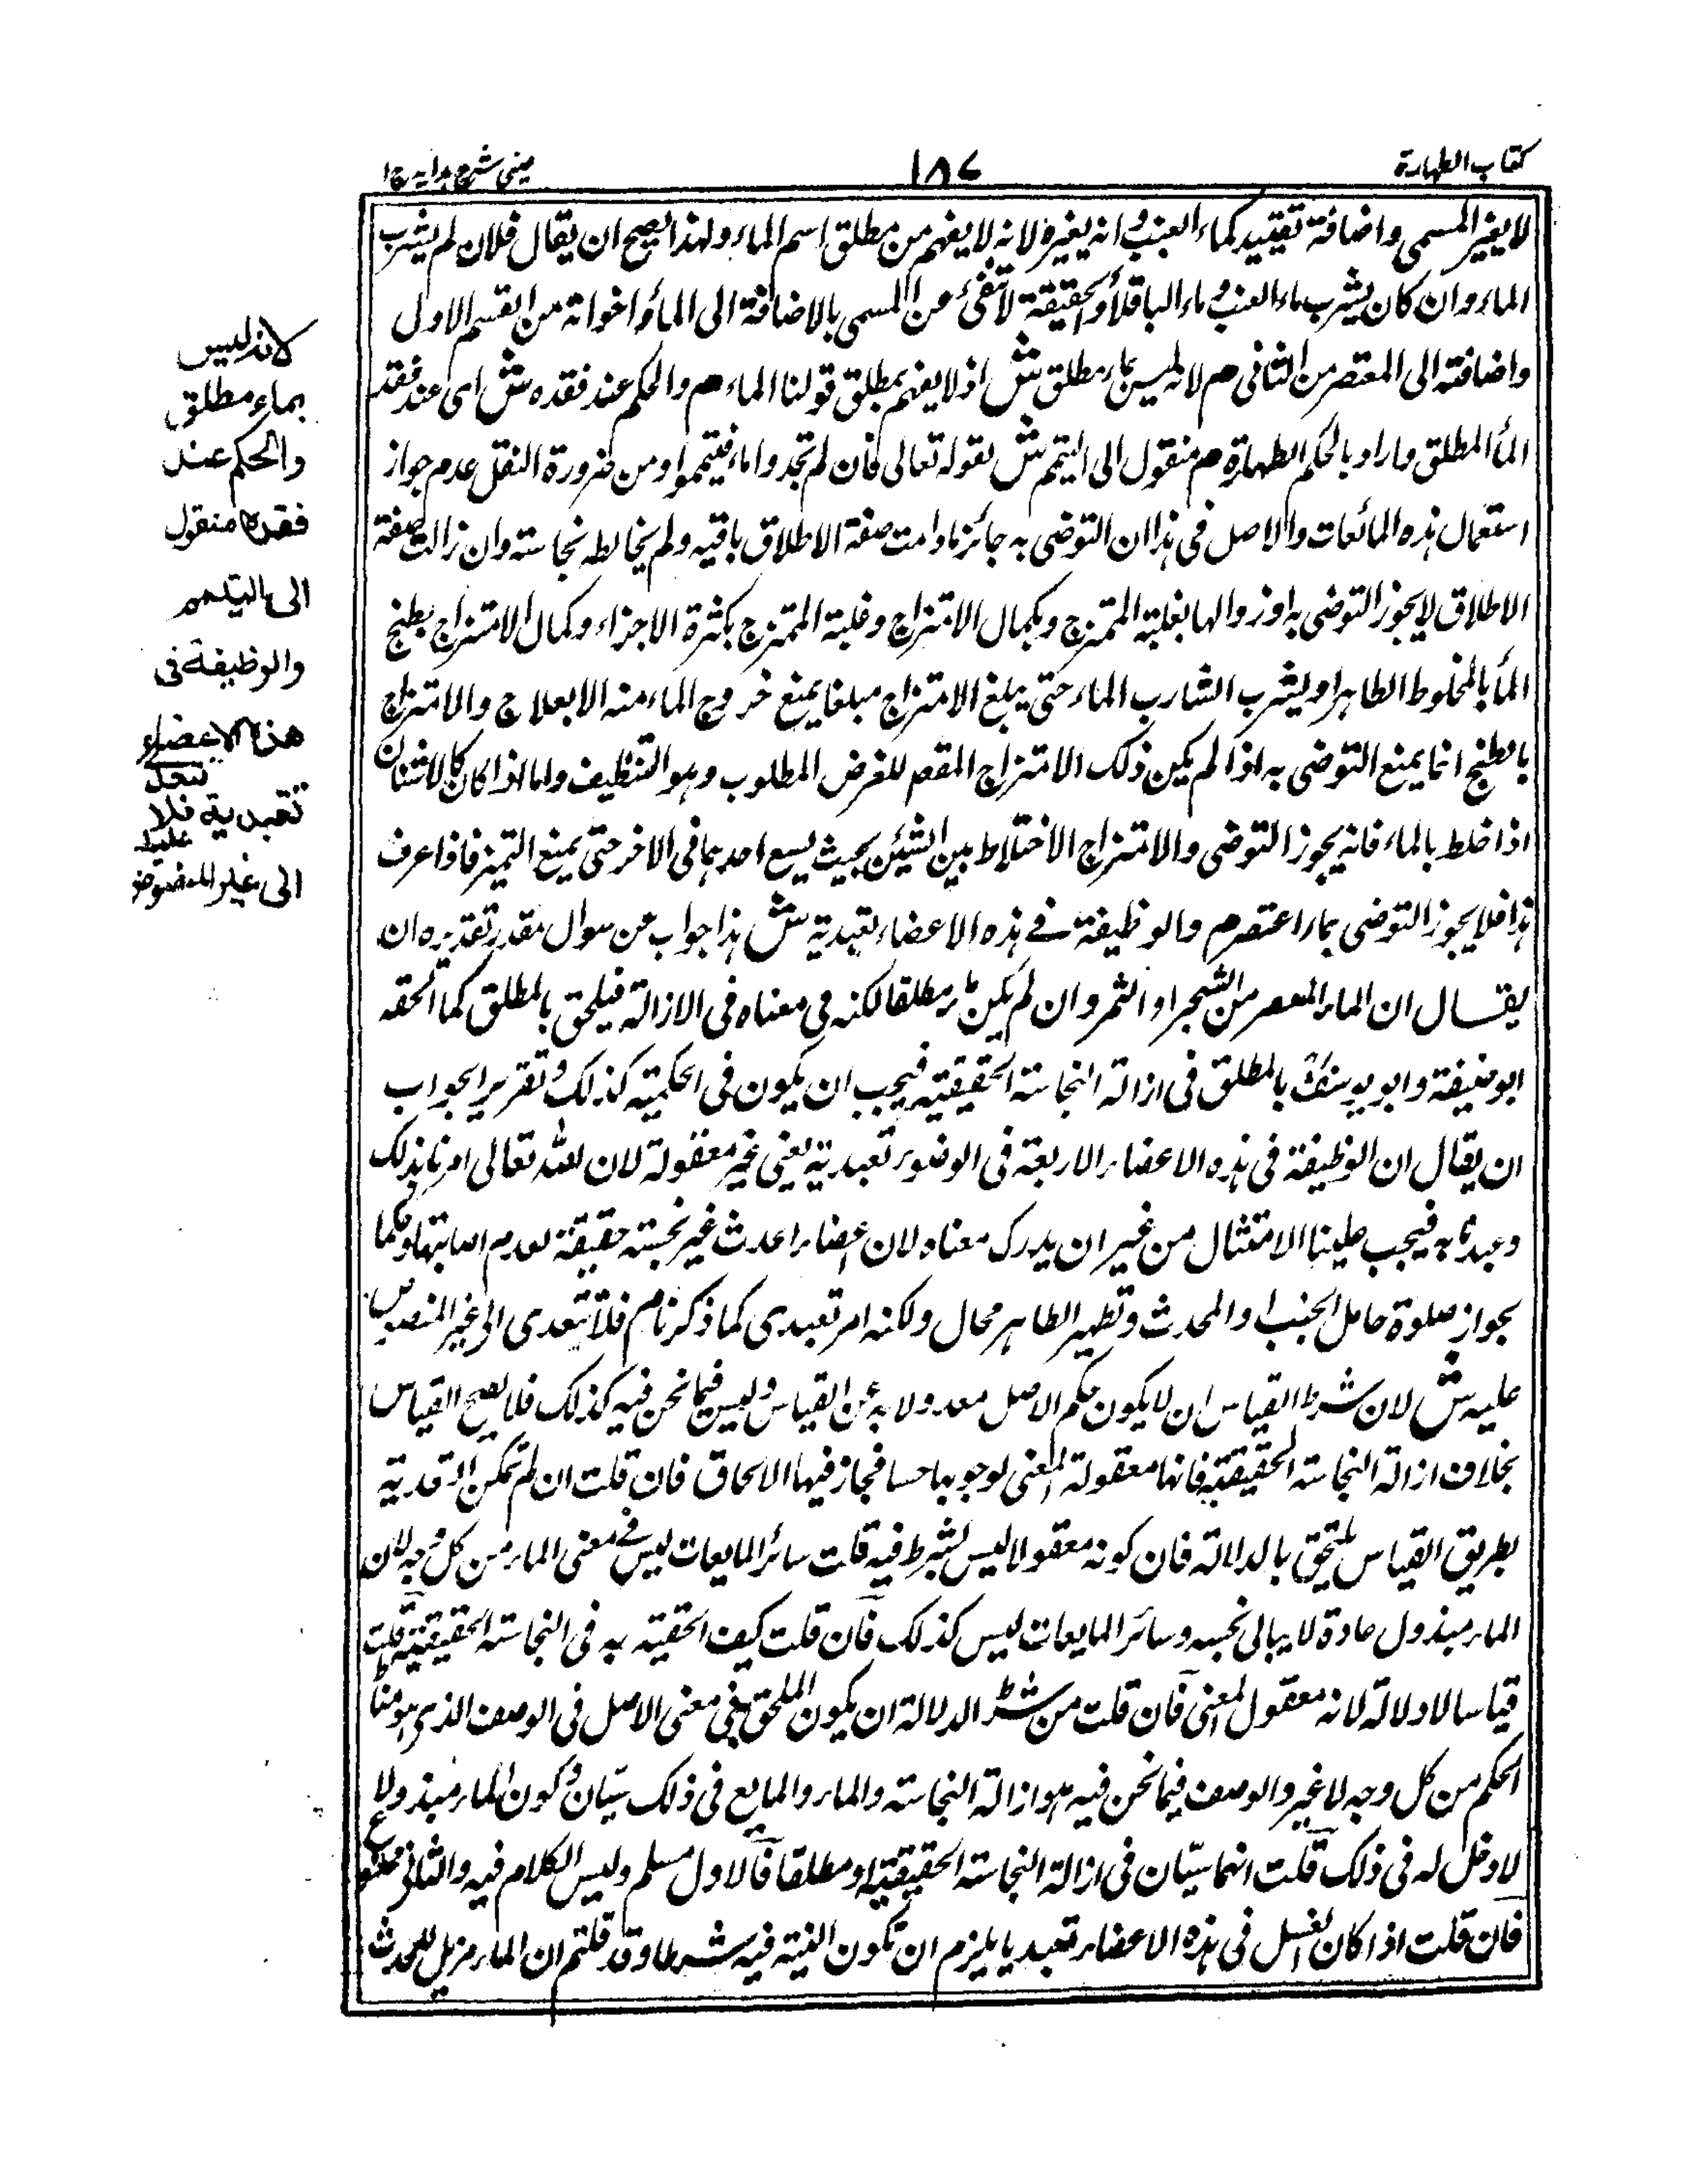 كتاب الطهارة
١٨٧
عيني شرح هدايه ج١
لا يغير المسمى واضافة تقييد كماء العنب وانه يغيره لانه لا يفهم من مطلق اسم الماء ولهذا يصح ان يقال فلان لم يشرب
الماء وان كان يشرب ماء العنب وماء الباقلأ والحقيقة لا تنفئ عن المسمى بالاضافة الى المأ واخواته من القسم الاول
واضافته الى المعتصر من الثاني م لانه ليس بماء مطلق ش اذ لا يفهم بمطلق قولنا الماء م والحكم عند فقده ش اى عند فقد
المأ المطلق واراد بالحكم الطهارة م منقول الى التيمم ش بقوله تعالى فان لم تجدوا ماء فتيمموا ومن ضرورة النقل عدم جواز
استعمال هذه المائعات والاصل فى هذا ان التوضى به جائز مادامت صفة الاطلاق باقيه ولم يخالطه نجاسته وان زالت صفة
الاطلاق لا يجوز التوضى به اوزوالها بغلبة الممتزج وبكمال الامتزاج وغلبة الممتزج بكثرة الاجزاء وكمال الامتزاج بطبخ
المأ بالمخلوط الطاهر او يشرب الشارب الماء حتى يبلغ الامتزاج مبلغا يمنع خروج الماء منه الا بعلاج والامتزاج
بالطبخ انما يمنع التوضى به اذا لم يكن ذلك الامتزاج المقصر للغرض المطلوب وهو التنظيف واما اذا كان كالاشنان
اذا خلط بالماء فانه يجوز التوضى والامتزاج الاختلاط بين الشيئين بحيث يسع احدهما فى الاخر حتى يمنع التميز فاذا عرف
هذا فلا يجوز التوضى بماء اعتصر م والوظيفة فے هذه الاعضاء تعبدية ش هذا جواب عن سوال مقدر تقديره ان
يقال ان الماء المعصر من الشجر او الثمر وان لم يكن ماء مطلقا لكنه في معناه فى الازالة فيلحق بالمطلق كما الحقه
ابو حنيفة وابو يوسف بالمطلق فى ازالة النجاسة الحقيقيه فيجب ان يكون فى الحكمية كذلك وتقرير الجواب
ان يقال ان الوظيفة فى هذه الاعضاء الاربعة فى الوضوء تعبدية يعنى غير معقولة لان الله تعالى امرنا بذلك
وعبدنا به فيجب علينا الامتثال من غير ان يدرك معناه لان اعضاء المحدث غير نجسته حقيقة لعدم اصابتها وحكما
بجواز صلوة حامل الجنب او المحدث وتطهير الطاهر محال ولكنه امر تعبدى كما ذكرنا م فلا تتعدى الى غير المنصوص
عليه ش لان شرط القياس ان لا يكون حكم الاصل معدولا به عن القياس وليس فيما نحن فيه كذلك فلا يصح القياس
بخلاف ازالة النجاسة الحقيقية فانها معقولة المعنى لوجوبها حسا فجاز فيها الالحاق فان قلت ان لم تمكن التعدية
بطريق القياس يلتحق بالدلالة فان كونه معقولا ليس بشرط فيه قلت سائر المايعات ليس فے معنى الماء من كل وجه لان
الماء مبذول عادة لا يبالى نجسه وسائر المايعات ليس كذلك فان قلت كيف الحقيته به فى النجاسته الحقيقية قلت
قياسا لا دلالة لانه معقول المعنى فان قلت من شرط الدلالة ان يكون الملحق في معنى الاصل فى الوصف الذى هو مناط
الحكم من كل وجه لا غير والوصف فيما نحن فيه هو ازالة النجاسته والماء والمايع فى ذلك سيّان وكون الماء مبذولا
لا دخل له فى ذلك قلت انهما سيّان فى ازالة النجاسته الحقيقية او مطلقا فالاول مسلم وليس الكلام فيه والثانى ممنوع
فان قلت اذا كان الغسل فى هذه الاعضاء تعبديا يلزم ان تكون النية فيه شرطا وقد قلتم ان الماء مزيل للحدث
لانه ليس
بماء مطلق
والحكم عند
فقده منقول
الى التيمم
والوظيفة فى
هذه الاعضاء
تعبدية فلا
تتعد
الى غير المنصوص
عليه